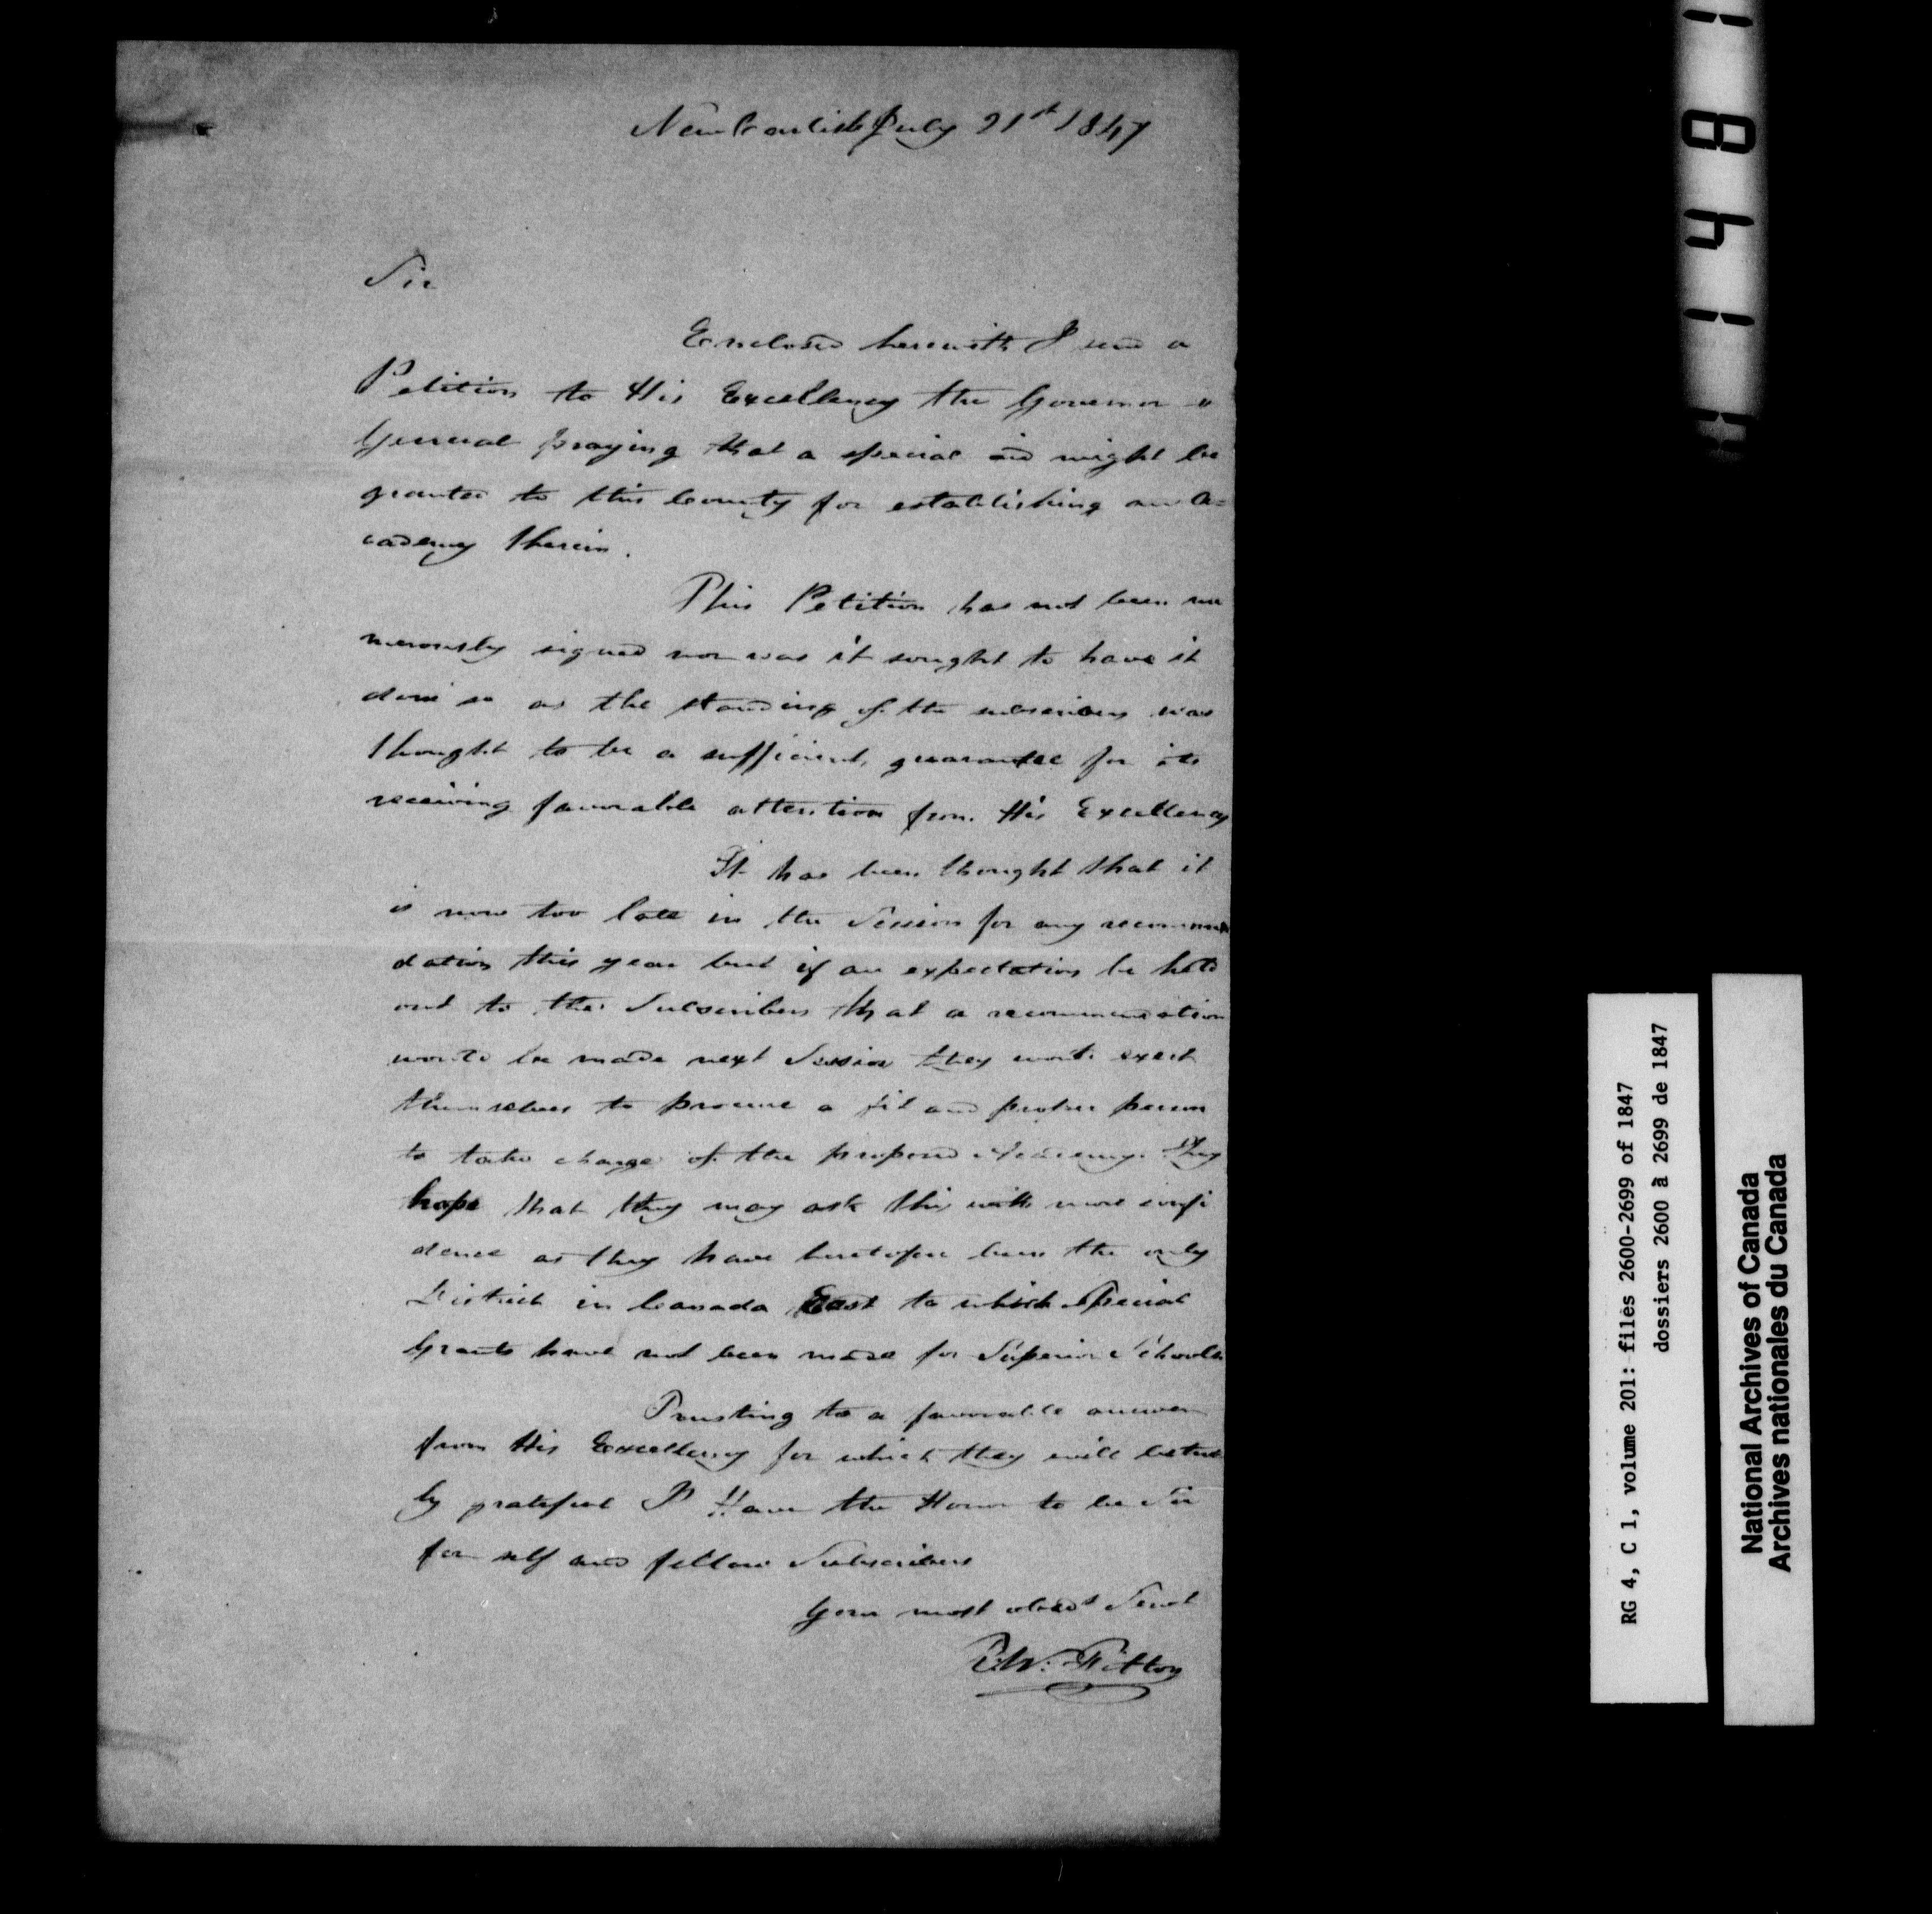 New Carlisle July 21st 1847
Sir
Enclosed herewith I send a
Petition to His Excellency the Governor
General praying that a special aid might be
granted to this County for establishing an A=
cademy therein.
This Petition has not been nu
merously signed nor was it sought to have it
done so as the standing of the subscribers was
thought to be a sufficient guarantee for its
receiving favorable attention from His Excellency
It has been thought that it
is now too late in the Session for any recommen
dation this year but if an expectation be held
out to the Subscribers that a recommendation
would be made next Session they would exert
themselves to procure a fit and proper person
to take charge of the proposed Academy. They
hope that they may ask this with more confi
dence as they have heretofore been the only
District in Canada East to which Special
Grants have not been made for Superior Schools
Trusting to a favorable answer
from His Excellency for which they will be tru
ly grateful I Have the Honor to be Sir
for self and fellow Subscribers
Your most obedt Servt
Tilton
1 8 4 1
RG 4, C 1, volume 201: files 2600-2699 of 1847
dossiers 2600 à 2699 de 1847
National Archives of Canada
Archives nationales du Canada